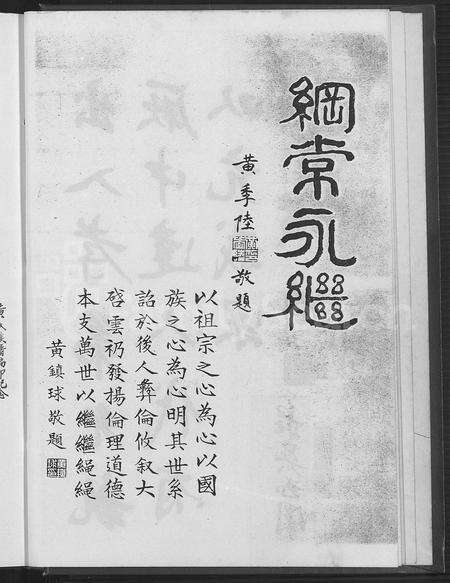 綱常永繼
黃季陸敬題
以祖宗之心為心以國
族之心為心明其世系
詒於後人彝倫攸叙大
啓雲礽發揚倫理道德
本支萬世以繼繼繩繩
黃鎮球敬題